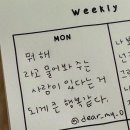 Weekly
MON
뭐 해
라고 물어봐 주는
사람이 있다는 거
되게 큰 행복같다.
@dear_my.o
나